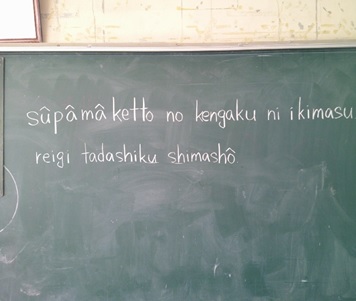 sûpâmâketto no kengaku ni ikimasu
reigi tadashiku shimashô